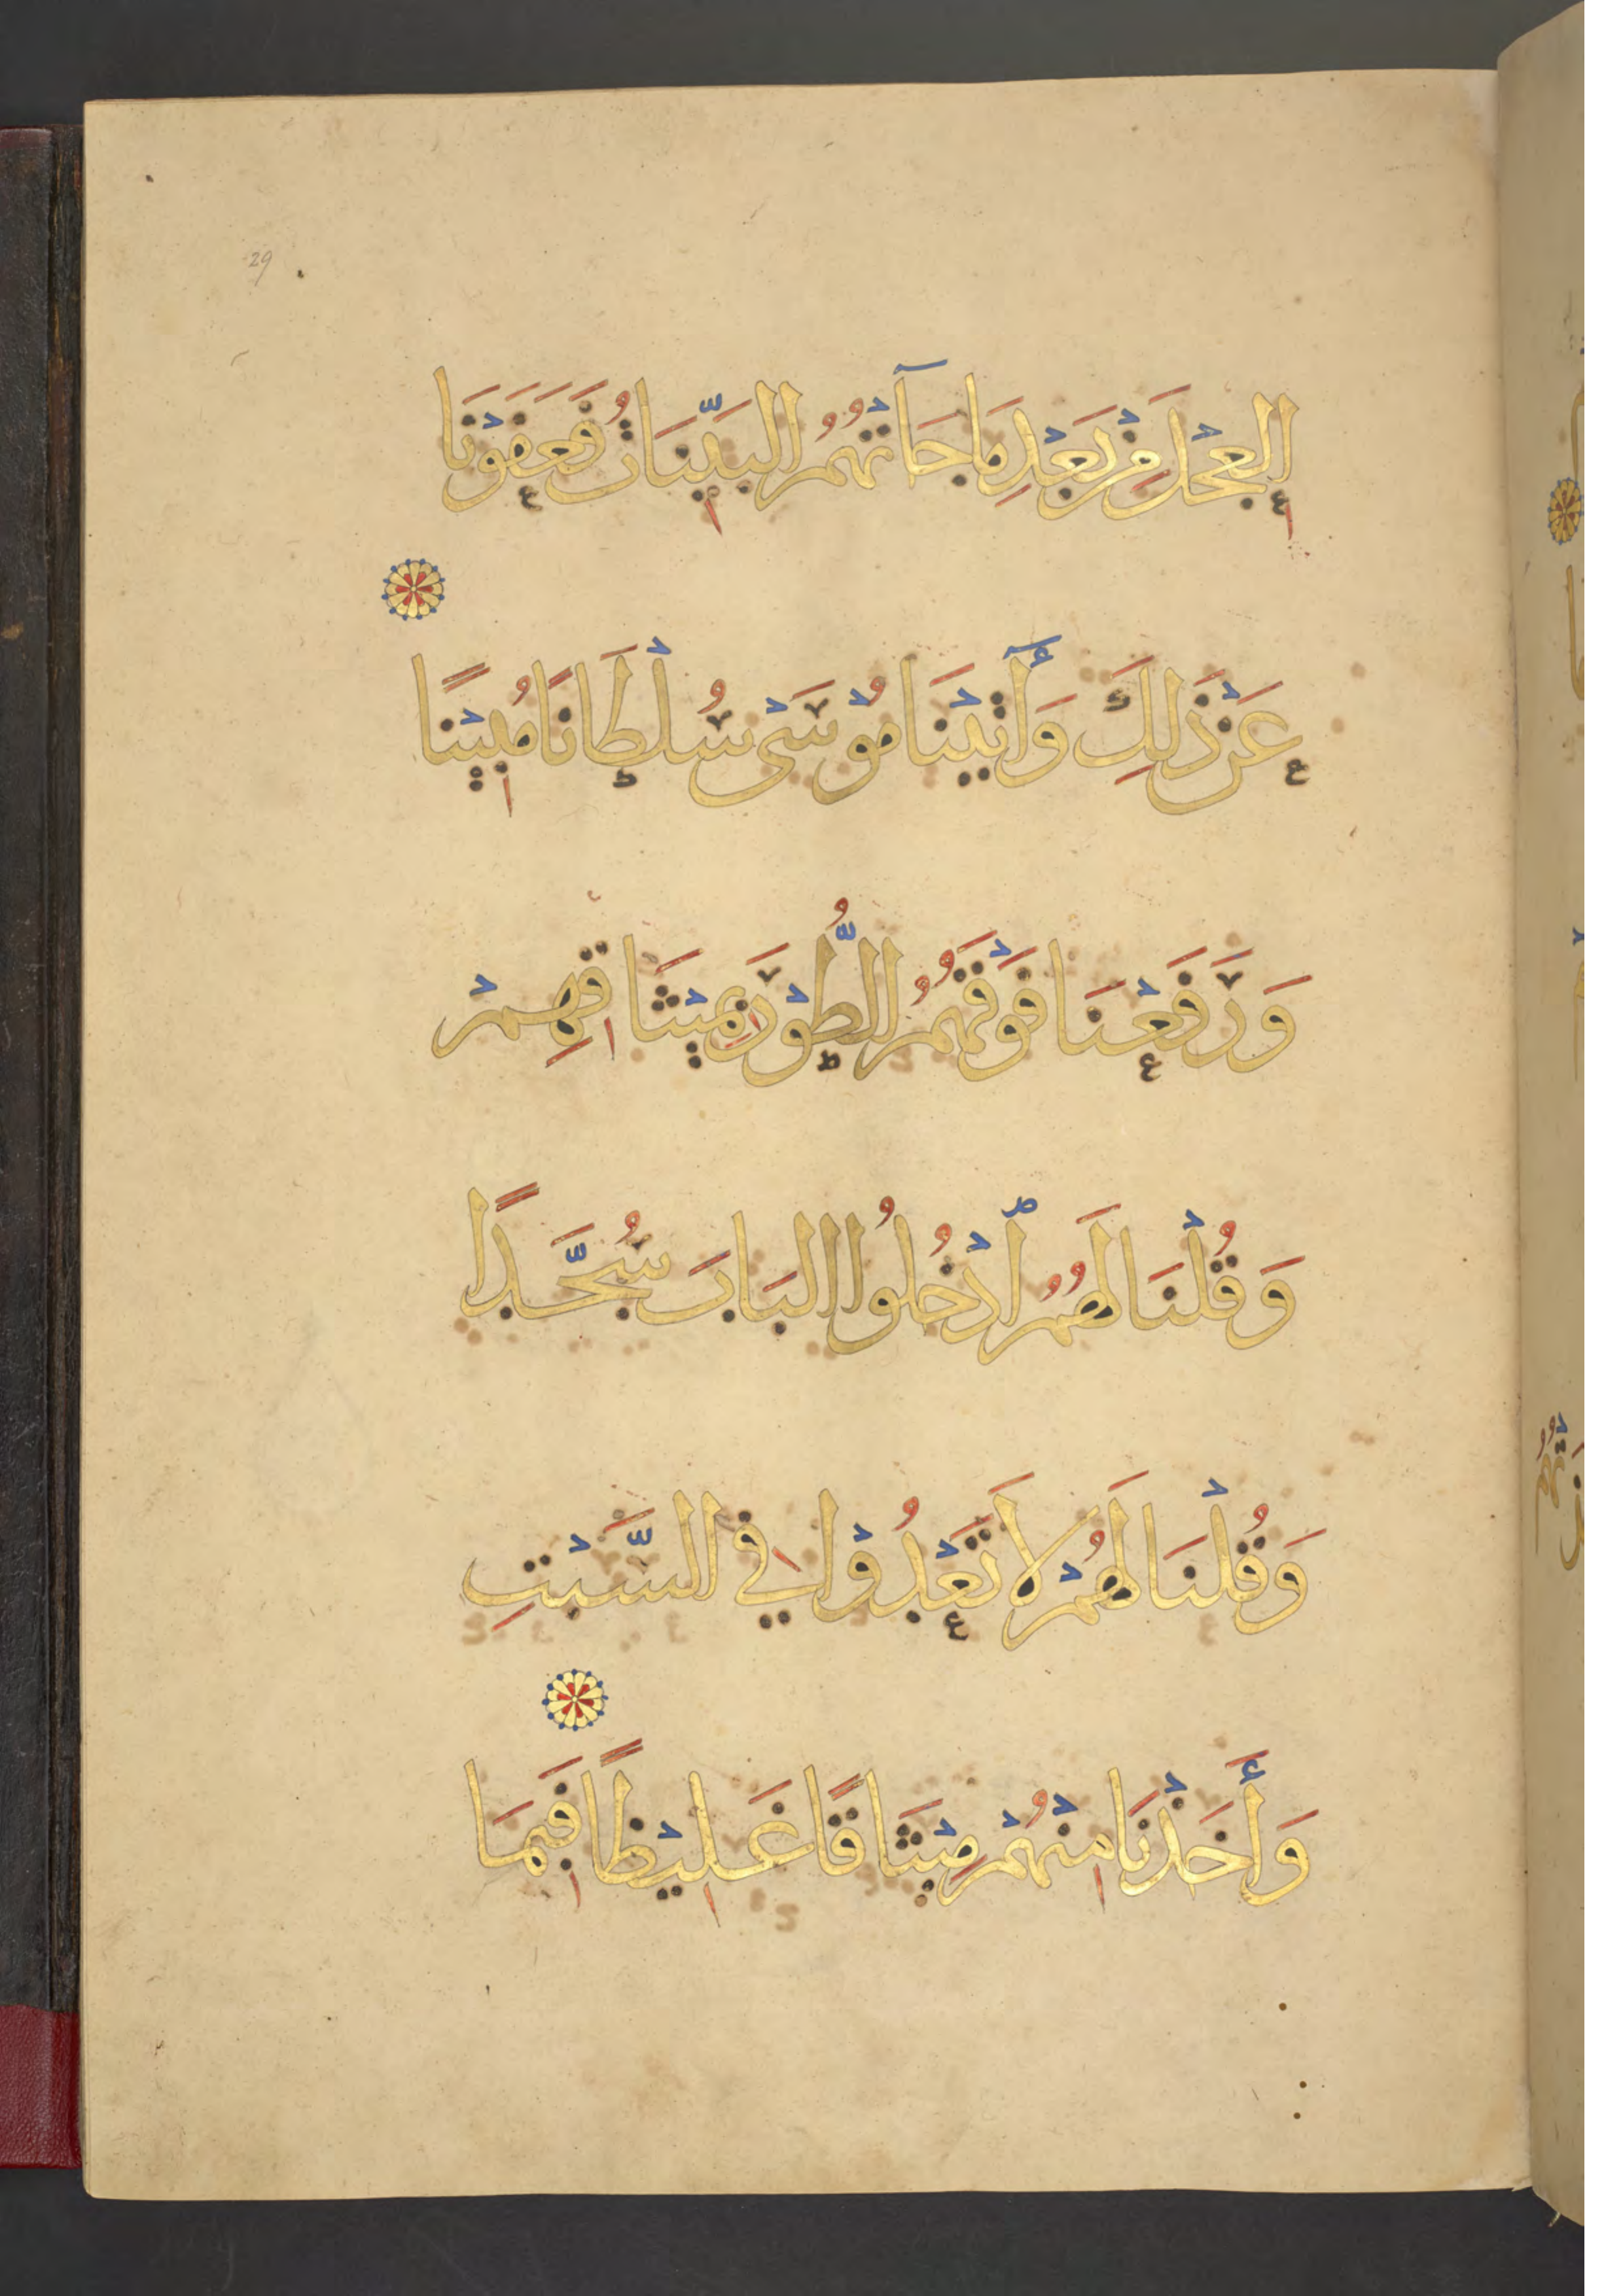 29
الْعِجْلَ مِنْ بَعْدِ مَا جَآتْهُمُ الْبَيِّنَاتُ فَعَفَوْنَا
عَنْ ذَلِكَ وَأَتَيْنَا مُوْسَىْ سُلْطَانًا مُبِيْنًا
وَرَفَعْنَا فَوْقَهُمُ الطُّوْرَ بِمِيْثَاقِهِمْ
وَقُلْنَا لَهُمُ ادْخُلُوا الْبَابَ سُجَّدًا
وَقُلْنَا لَهُمْ لَا تَعْدُوْا فِي السَّبْتِ
وَأَخَذْنَا مِنْهُمْ مِيْثَاقًا غَلِيْظًا فَبِمَا